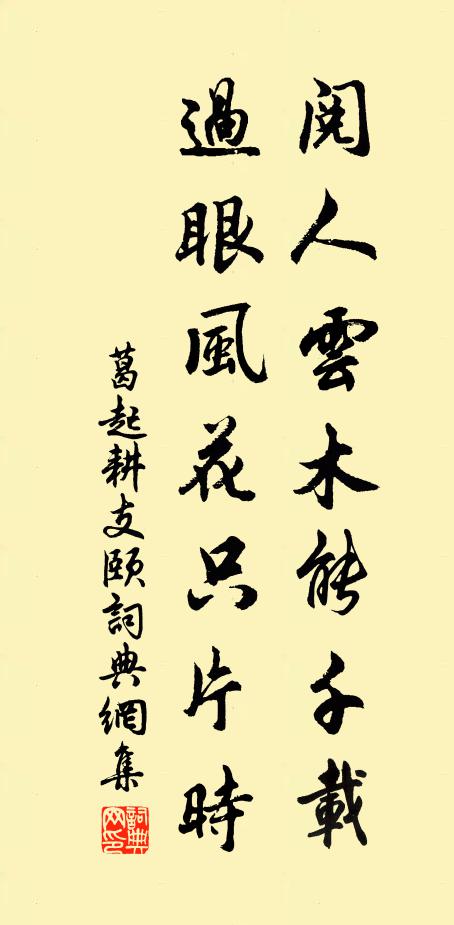 閱人雲木能千載
過眼風花只片時
葛起耕支頤詞典網集
詞典
网印